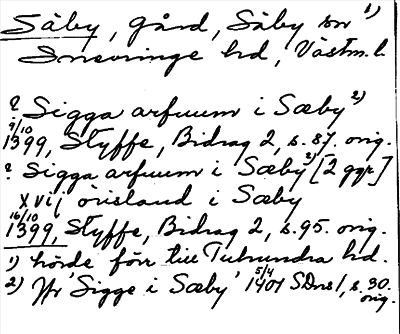 Säby, gård, Säby sn 1)
Snevringe hd, Västm. l.
? Sigga arfuum i Sæby 2)
9/10 1399, Styffe, Bidrag 2, s. 87. orig.
? Sigga arfuum i Sæby 2) [2 ggr]
xvij örisland i Sæby
16/10 1399, Styffe, Bidrag 2, s. 95. orig.
1) hörde förr till Tuhundra hd.
2) Jfr 'Sigge i Sæby' 5/4 1401 SDns 1, s. 30. orig.